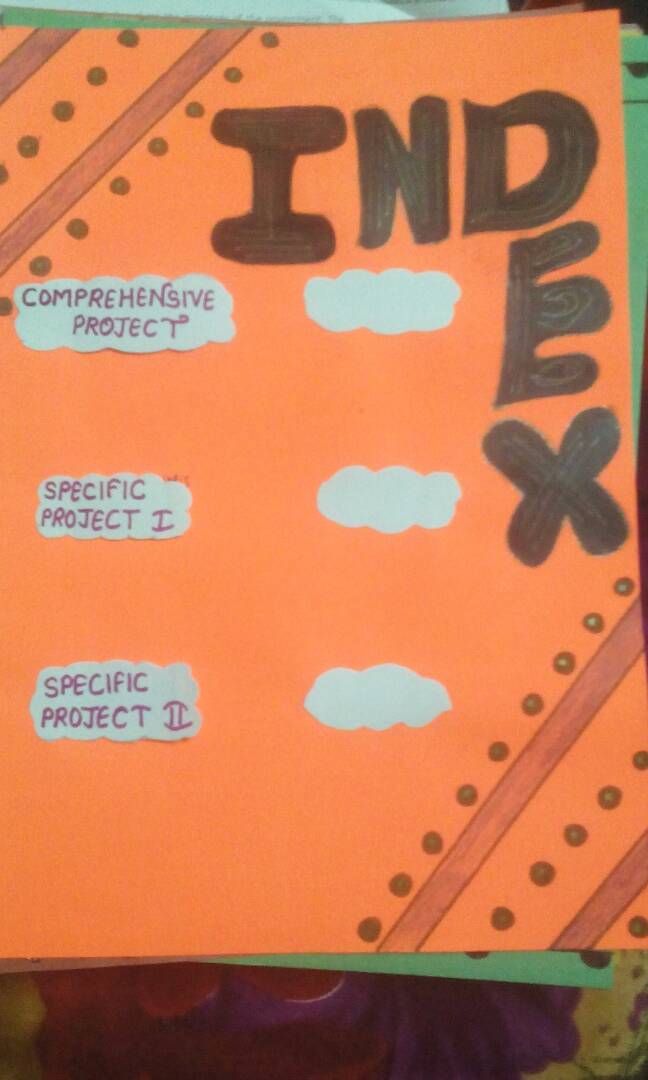 INDEX
COMPREHENSIVE
PROJECT
SPECIFIC
PROJECT I
SPECIFIC
PROJECT II